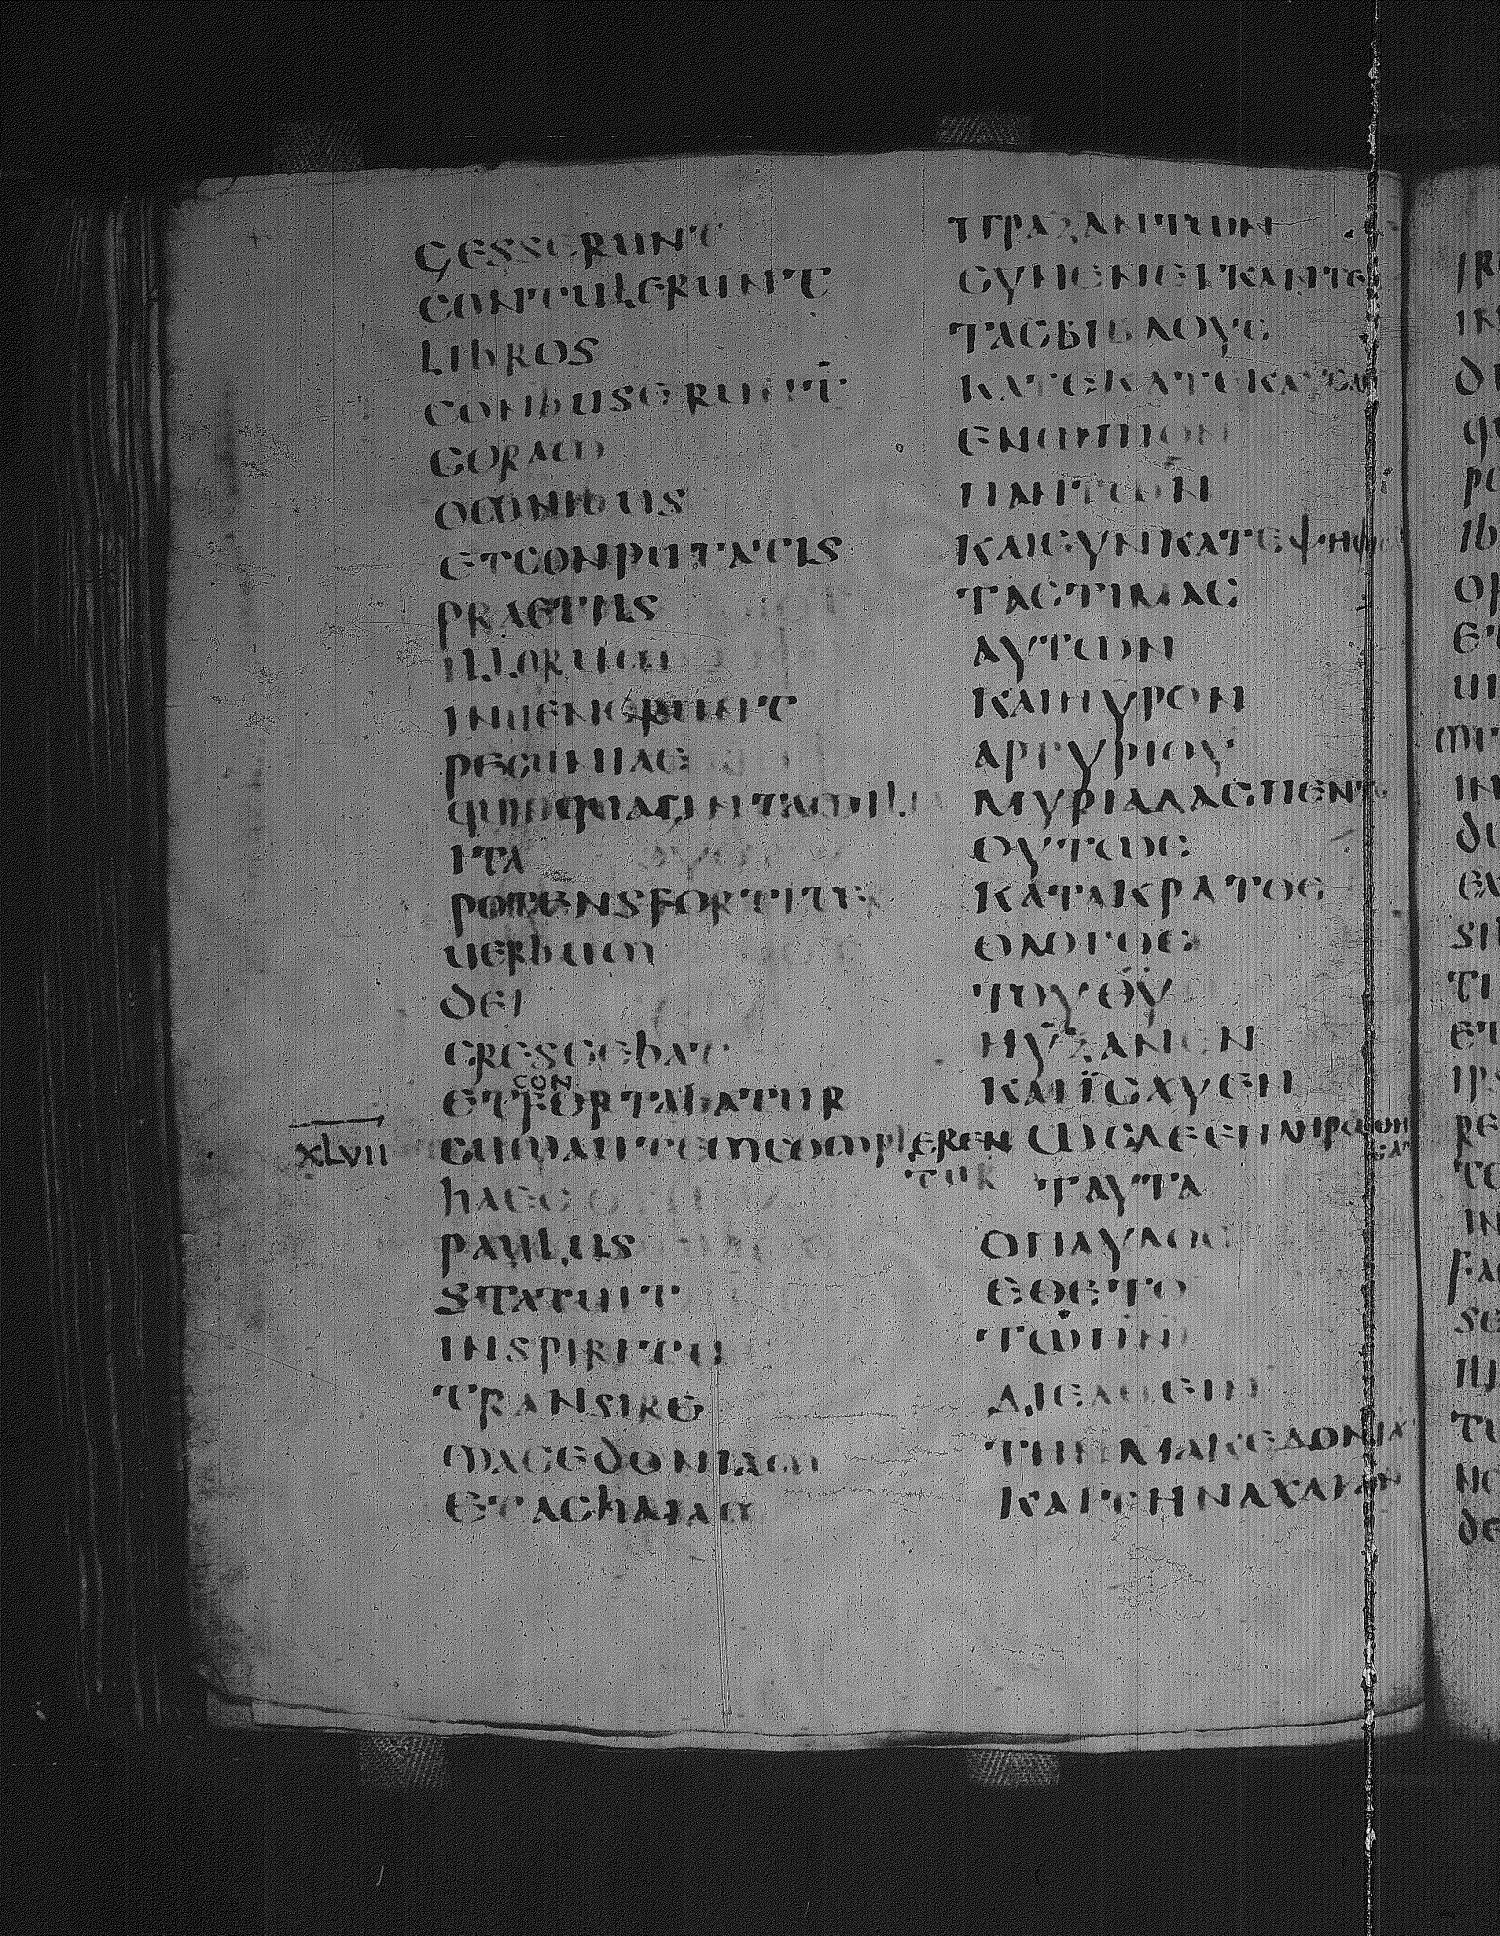 GESSERUNT
CONTULERUNT
LIBROS
CONBUSERUNT
CORAM
OMNIBUS
ETCONPUTATIS
PRAETIIS
ILLORUM
INUENERUNT
PECUNIAE
QUINQUAGINTAMILIA
ITA
POTENSFORTITER
UERBUM
DEI
CRESCEBAT
CON
ETFORTABATUR
XLVII CUMAUTEMCOMPLEREN
TUR
HAEC
PAULUS
STATUIT
INSPIRITU
TRANSIRE
MACEDONIAM
ETACHAIAM
ΠΡΑΞΑΝΤΩΝ
ϹΥΝΕΝΕΓΚΑΝΤΕϹ
ΤΑϹΒΙΒΛΟΥϹ
ΕΝΩΠΙΟΝ
ΠΑΝΤΩΝ
ΚΑΙϹΥΝΚΑΤΕΨΗΦΙ
ΤΑϹΤΙΜΑϹ
ΑΥΤΩΝ
ΚΑΙΗΥΡΟΝ
ΑΡΓΥΡΙΟΥ
ΜΥΡΙΑΔΑϹΠΕΝΤΕ
ΟΥΤΩϹ
ΚΑΤΑΚΡΑΤΟϹ
ΟΛΟΓΟϹ
ΤΟΥΘΥ
ΗΥΞΑΝΕΝ
ΚΑΙΪϹΧΥΕΝ
ΩϹΔΕΕΠΛΗΡΩΘΗ
ϹΑΝ
ΤΑΥΤΑ
ΟΠΑΥΛΟϹ
ΕΘΕΤΟ
ΤΩΠΝΙ
ΔΙΕΛΘΕΙΝ
ΤΗΝΜΑΚΕΔΟΝΙΑ
ΚΑΙΤΗΝΑΧΑΙΑΝ